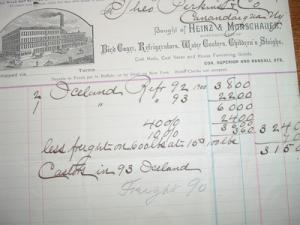 Theo Perkins & Co
Canandaigua NY
Bought of HEINZ & MUNSCHAUER,
Bird Cages, Refrigerators, Water Coolers, Children's Sleighs,
Coal Hods, Coal Vases and House Furnishing Goods
COR. SUPERIOR AND RANDALL STS.
Shipped via
Terms
2 Iceland Refr 92 1900 3800
2 " " 93 2200
6000
40% 2400
3600
10% 360 324
less freight on 600 lbs at 15¢ 100 lbs
315
Castors in 93 Iceland
Freight 90